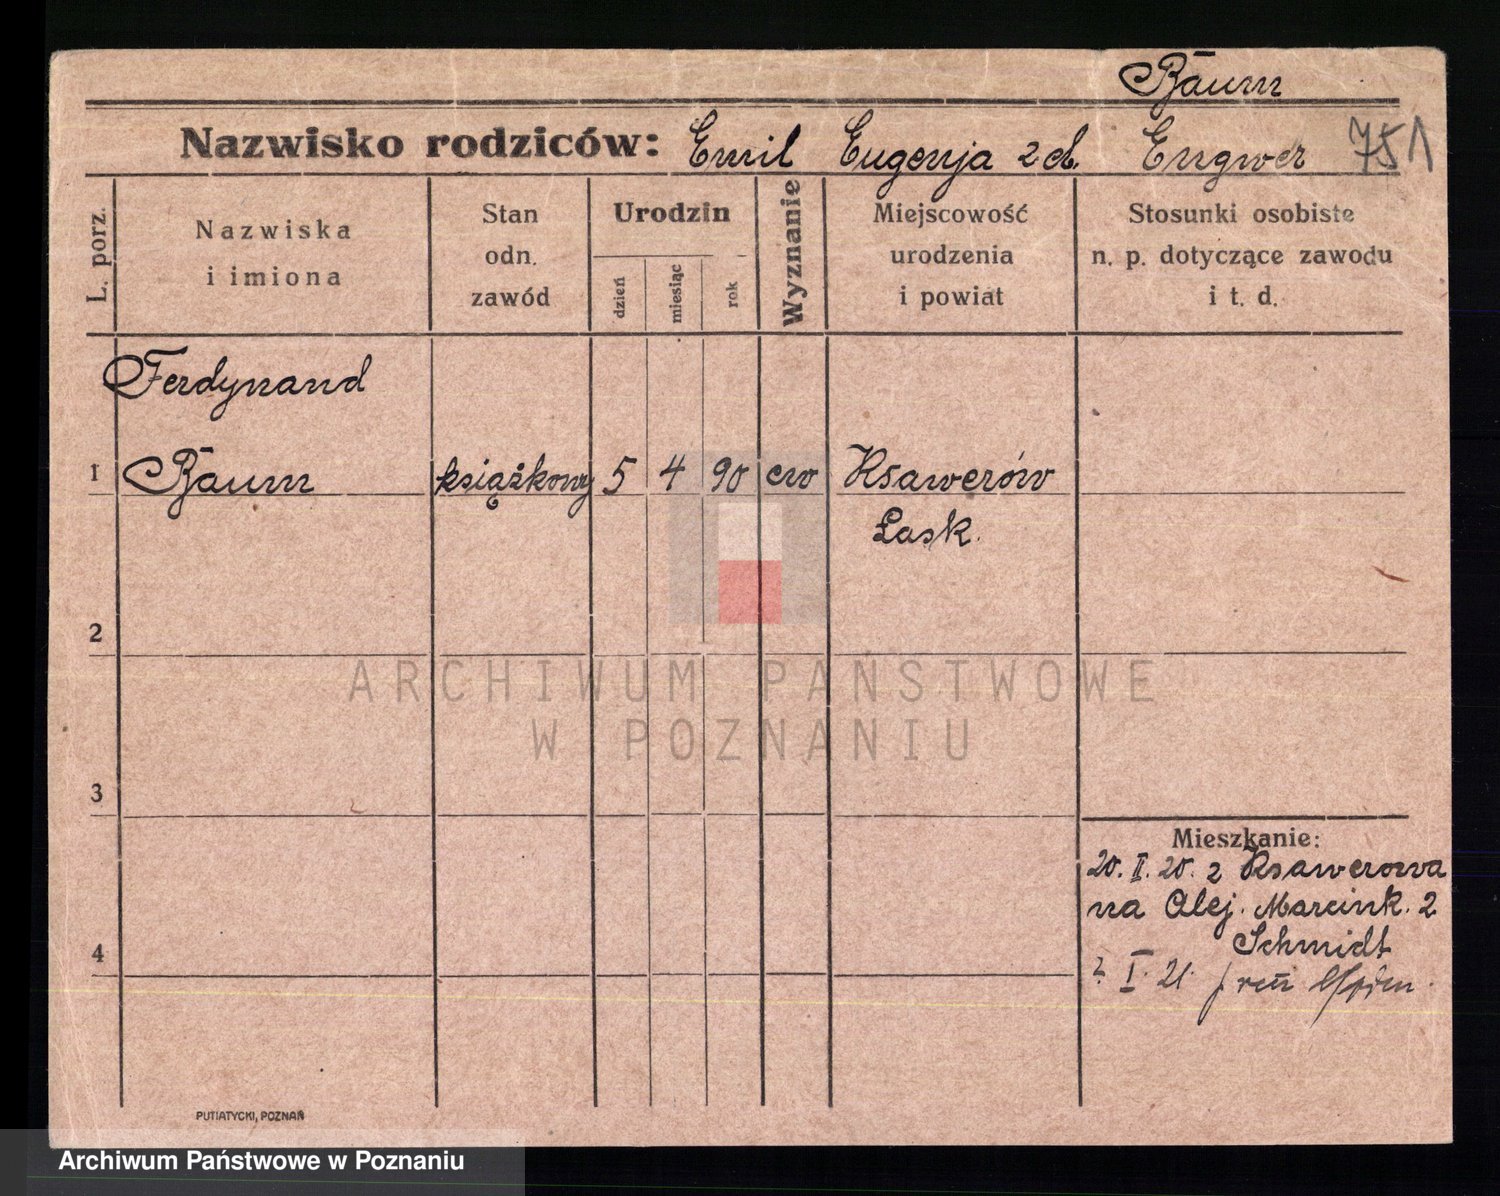 Baum
Nazwisko rodziców: Emil Eugenja z d. Engwer 751
L. porz.
Nazwiska
i imiona
Stan
odn.
zawód
Urodzin
dzień
miesiąc
rok
Wyznanie
Miejscowość
urodzenia
i powiat
Stosunki osobiste
n. p. dotyczące zawodu
i t. d.
Ferdynand
1 Baum książkowy 5 4 90 ew Ksawerów
Łask.
2
ARCHIWUM PAŃSTWOWE
W POZNANIU
3
Mieszkanie:
20. II. 20. z Ksawerowa
na Alej. Marcink. 2
Schmidt
4
I. 21.
PUTIATYCKI, POZNAŃ
Archiwum Państwowe w Poznaniu